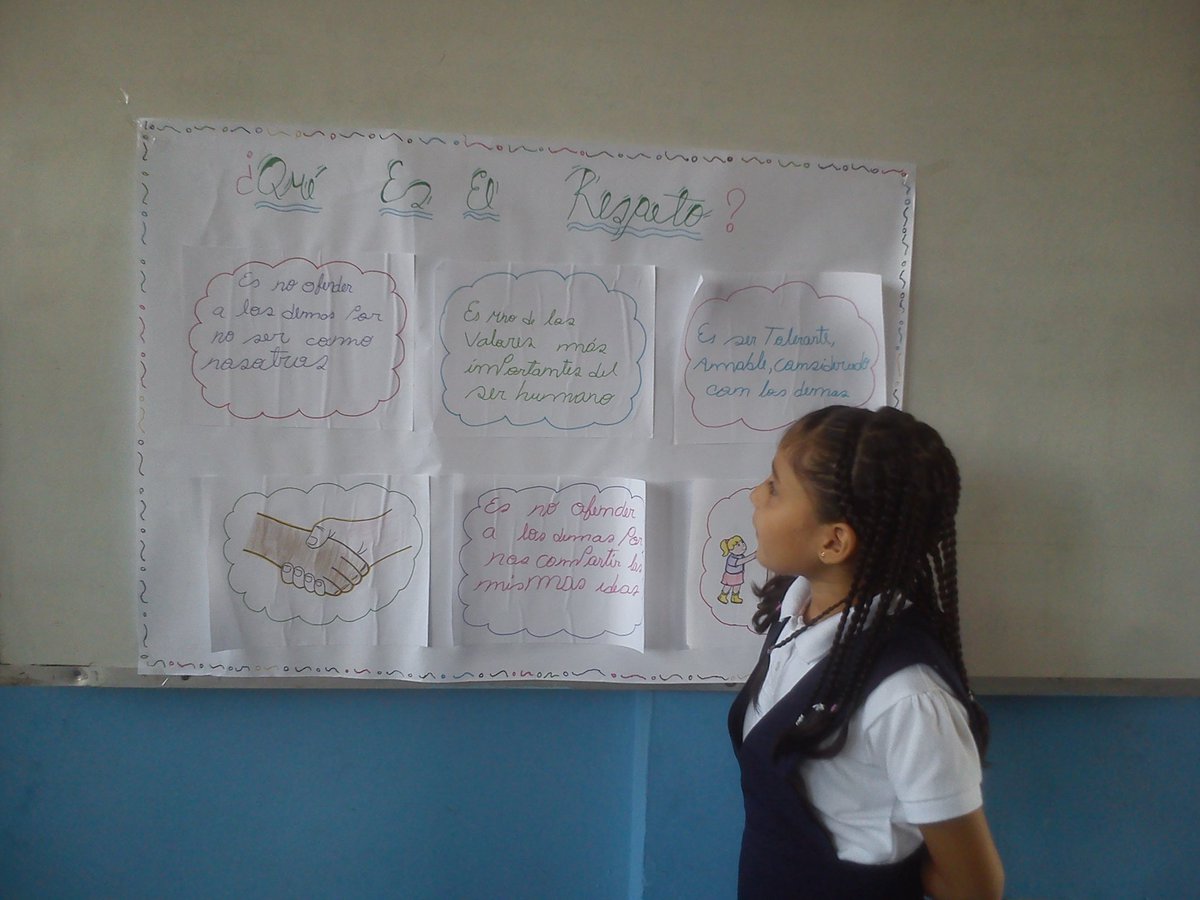 ¿Qué Es El Respeto?
Es no ofender
a los demas Por
no ser como
nosotros
Es uno de los
Valores más
importantes del
ser humano
Es ser Tolerante,
Amable, considerado
com los demas
Es no ofemder
a los demas Por
nos comPartir las
misMas ideas